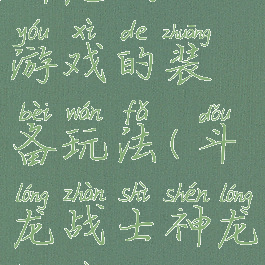 yóu xì de zhuāng
游戏的装
bèi wán fǎ dǒu
备玩法(斗
lóng zhàn shì shén lóng
龙战士神龙